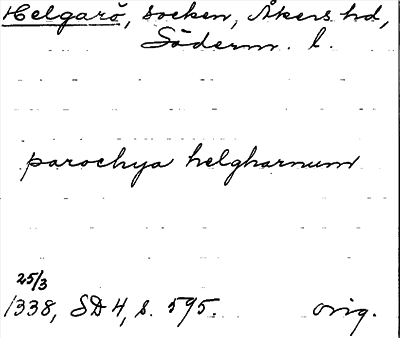 Helgarö, socken, Åkers hd,
Söderm. l.
parochya helgharnum
25/3
1338, SD 4, s. 595. orig.